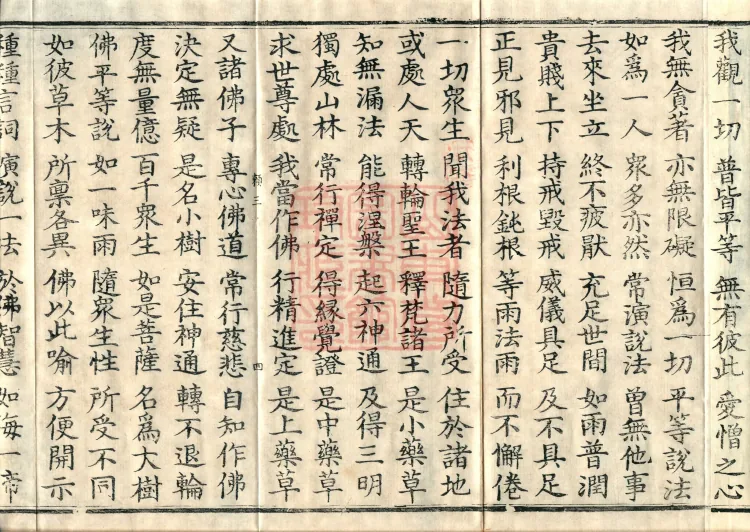 我觀一切 普皆平等 無有彼此 愛憎之心
我無貪著 亦無限礙 恒為一切 平等說法
如為一人 眾多亦然 常演說法 曾無他事
去來坐立 終不疲猒 充足世間 如雨普潤
貴賤上下 持戒毀戒 威儀具足 及不具足
正見邪見 利根鈍根 等雨法雨 而不懈倦
一切眾生 聞我法者 隨力所受 住於諸地
或處人天 轉輪聖王 釋梵諸王 是小藥草
知無漏法 能得涅槃 起六神通 及得三明
獨處山林 常行禪定 得緣覺證 是中藥草
求世尊處 我當作佛 行精進定 是上藥草
賴三 四
又諸佛子 專心佛道 常行慈悲 自知作佛
決定無疑 是名小樹 安住神通 轉不退輪
度無量億 百千眾生 如是菩薩 名為大樹
佛平等說 如一味雨 隨眾生性 所受不同
如彼草木 所稟各異 佛以此喻 方便開示
種種言詞 演說一法 於佛智慧 如海一渧